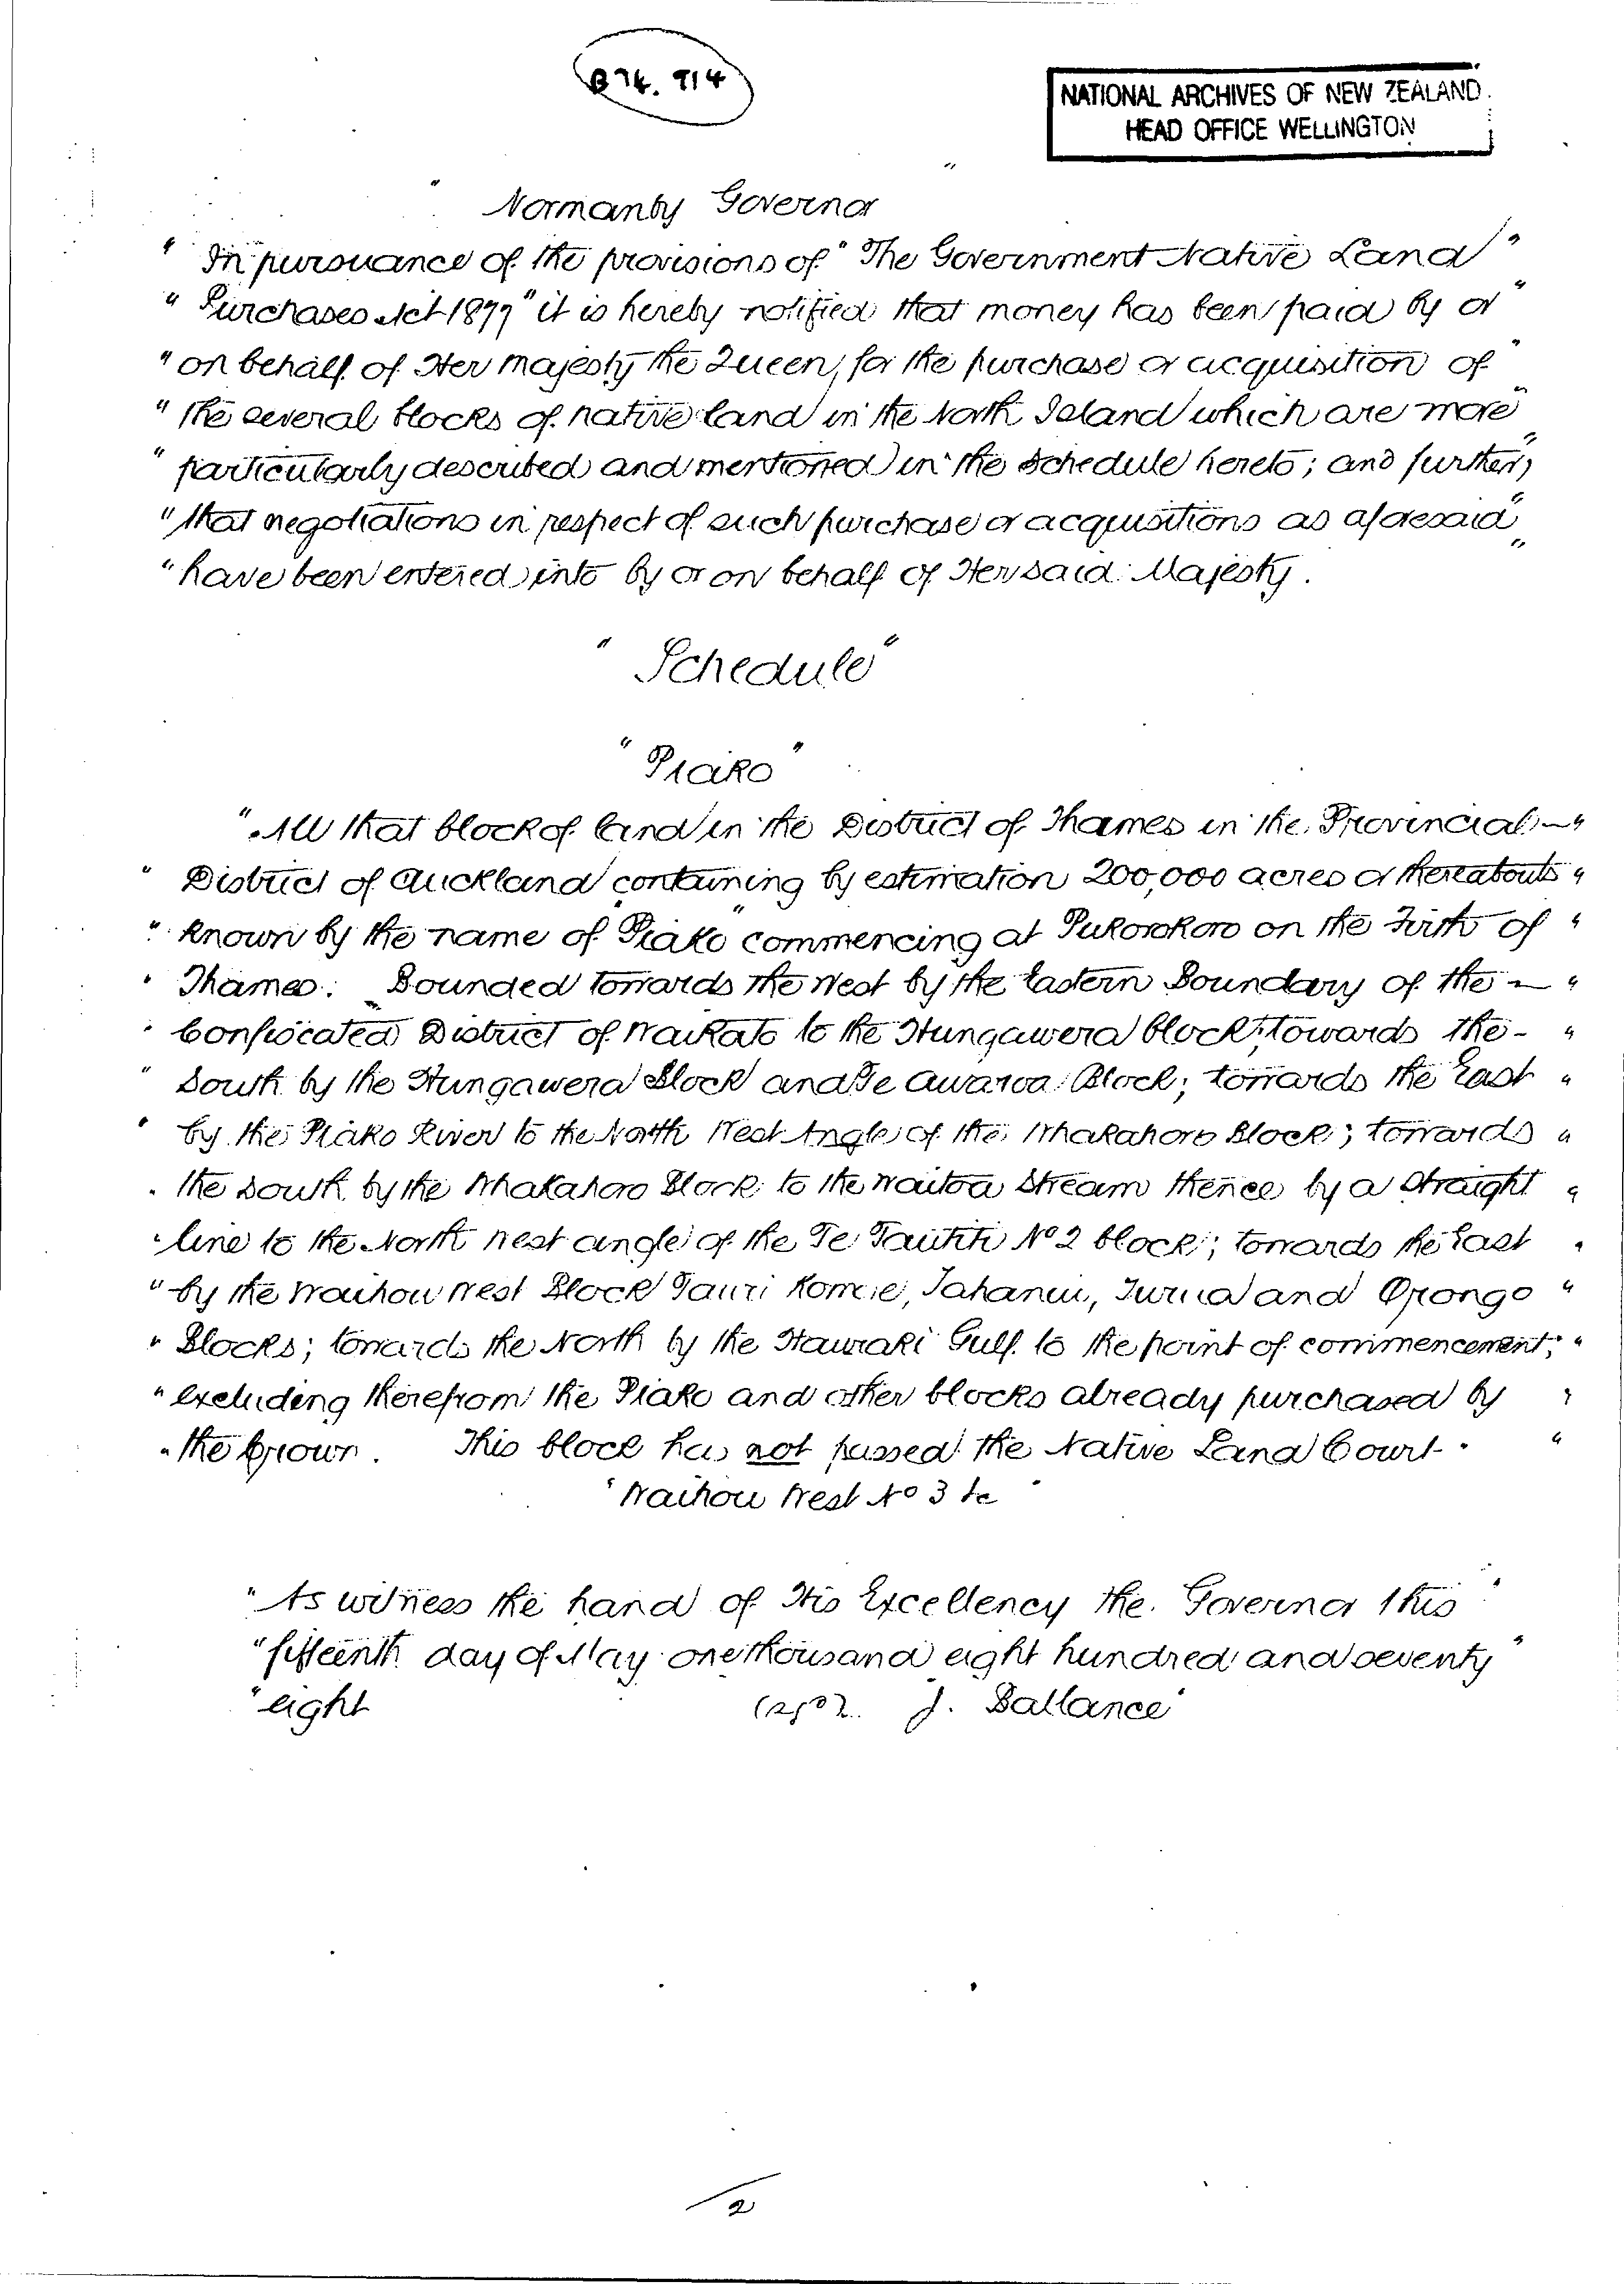 B 74. 914
NATIONAL ARCHIVES OF NEW ZEALAND
HEAD OFFICE WELLINGTON
" Normanby Governor "
" In pursuance of the provisions of "The Government Native Land "
" Purchases Act 1877" it is hereby notified that money has been paid by or "
" on behalf of Her Majesty the Queen, for the purchase or acquisition of "
" the several blocks of native land in the North Island which are more "
" particularly described and mentioned in the Schedule hereto; and further, "
" that negotiations in respect of such purchase or acquisitions as aforesaid "
" have been entered into by or on behalf of Her said Majesty. "
" Schedule "
" Piako "
" All that block of land in the District of Thames in the Provincial - "
" District of Auckland containing by estimation 200,000 acres or thereabouts "
" known by the name of Piako " commencing at Pukorokoro on the Firth of "
" Thames. Bounded towards the West by the Eastern Boundary of the - "
" Confiscated District of Waikato to the Hungawera block; towards the - "
" South by the Hungawera Block and Te Awaroa Block; towards the East "
" by the Piako River to the North West Angle of the Whakahoro Block; towards "
" the South by the Whakahoro Block to the Waitoa Stream thence by a straight "
" line to the North West angle of the Te Tautiti No 2 block; towards the East "
" by the Waihou West Block Tauri Komcie, Tahanui, Turua and Opongo "
" Blocks; towards the North by the Hauraki Gulf to the point of commencement; "
" excluding therefrom the Piako and other blocks already purchased by "
" the Crown. This block has not passed the Native Land Court. "
" Waihou West No 3 &c "
" As witness the hand of His Excellency the Governor this "
" fifteenth day of May one thousand eight hundred and seventy "
" eight J. Ballance "
2